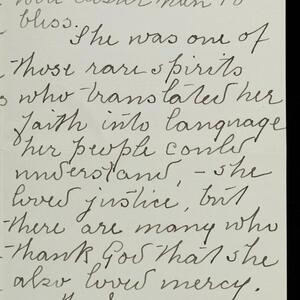 bliss.
She was one of
those rare spirits
who translated her
faith into language
her people could
understand, - she
loved justice, but
there are many who
thank God that she
also loved mercy.